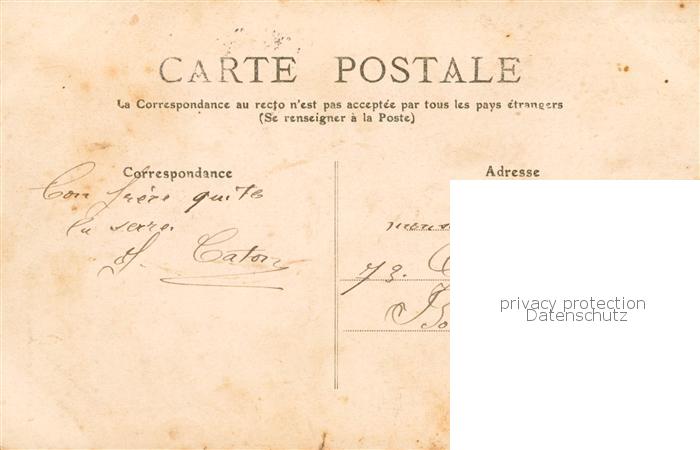 CARTE POSTALE
La Correspondance au recto n'est pas acceptée par tous les pays étrangers
(Se renseigner à la Poste)
Correspondance
Adresse
frère quite
la serre
Caton
73.
privacy protection
Datenschutz